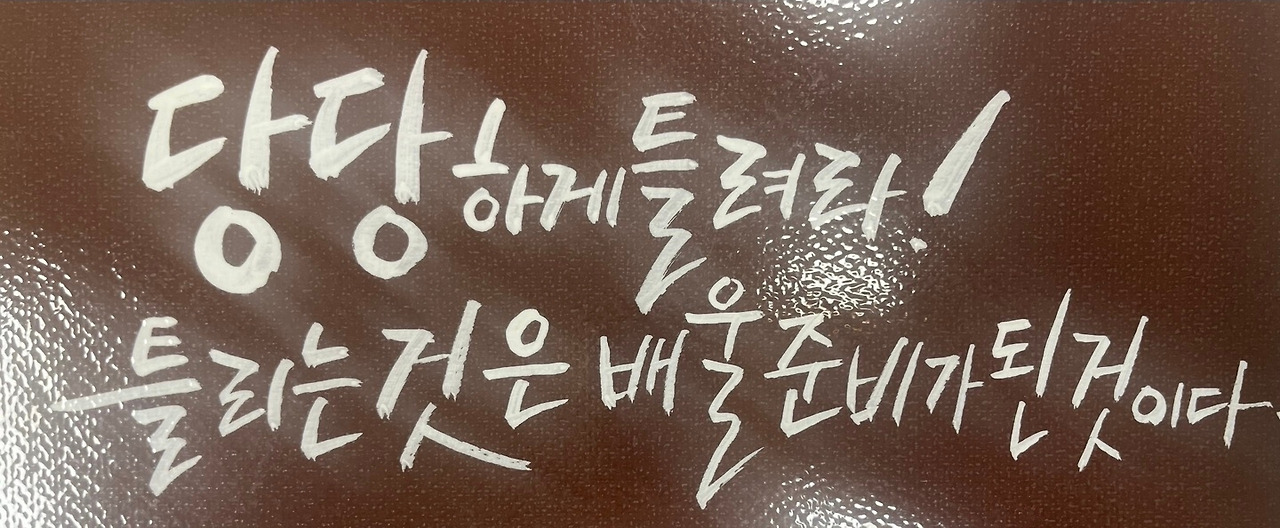 당당하게 틀려라!
틀리는것은 배울준비가된것이다